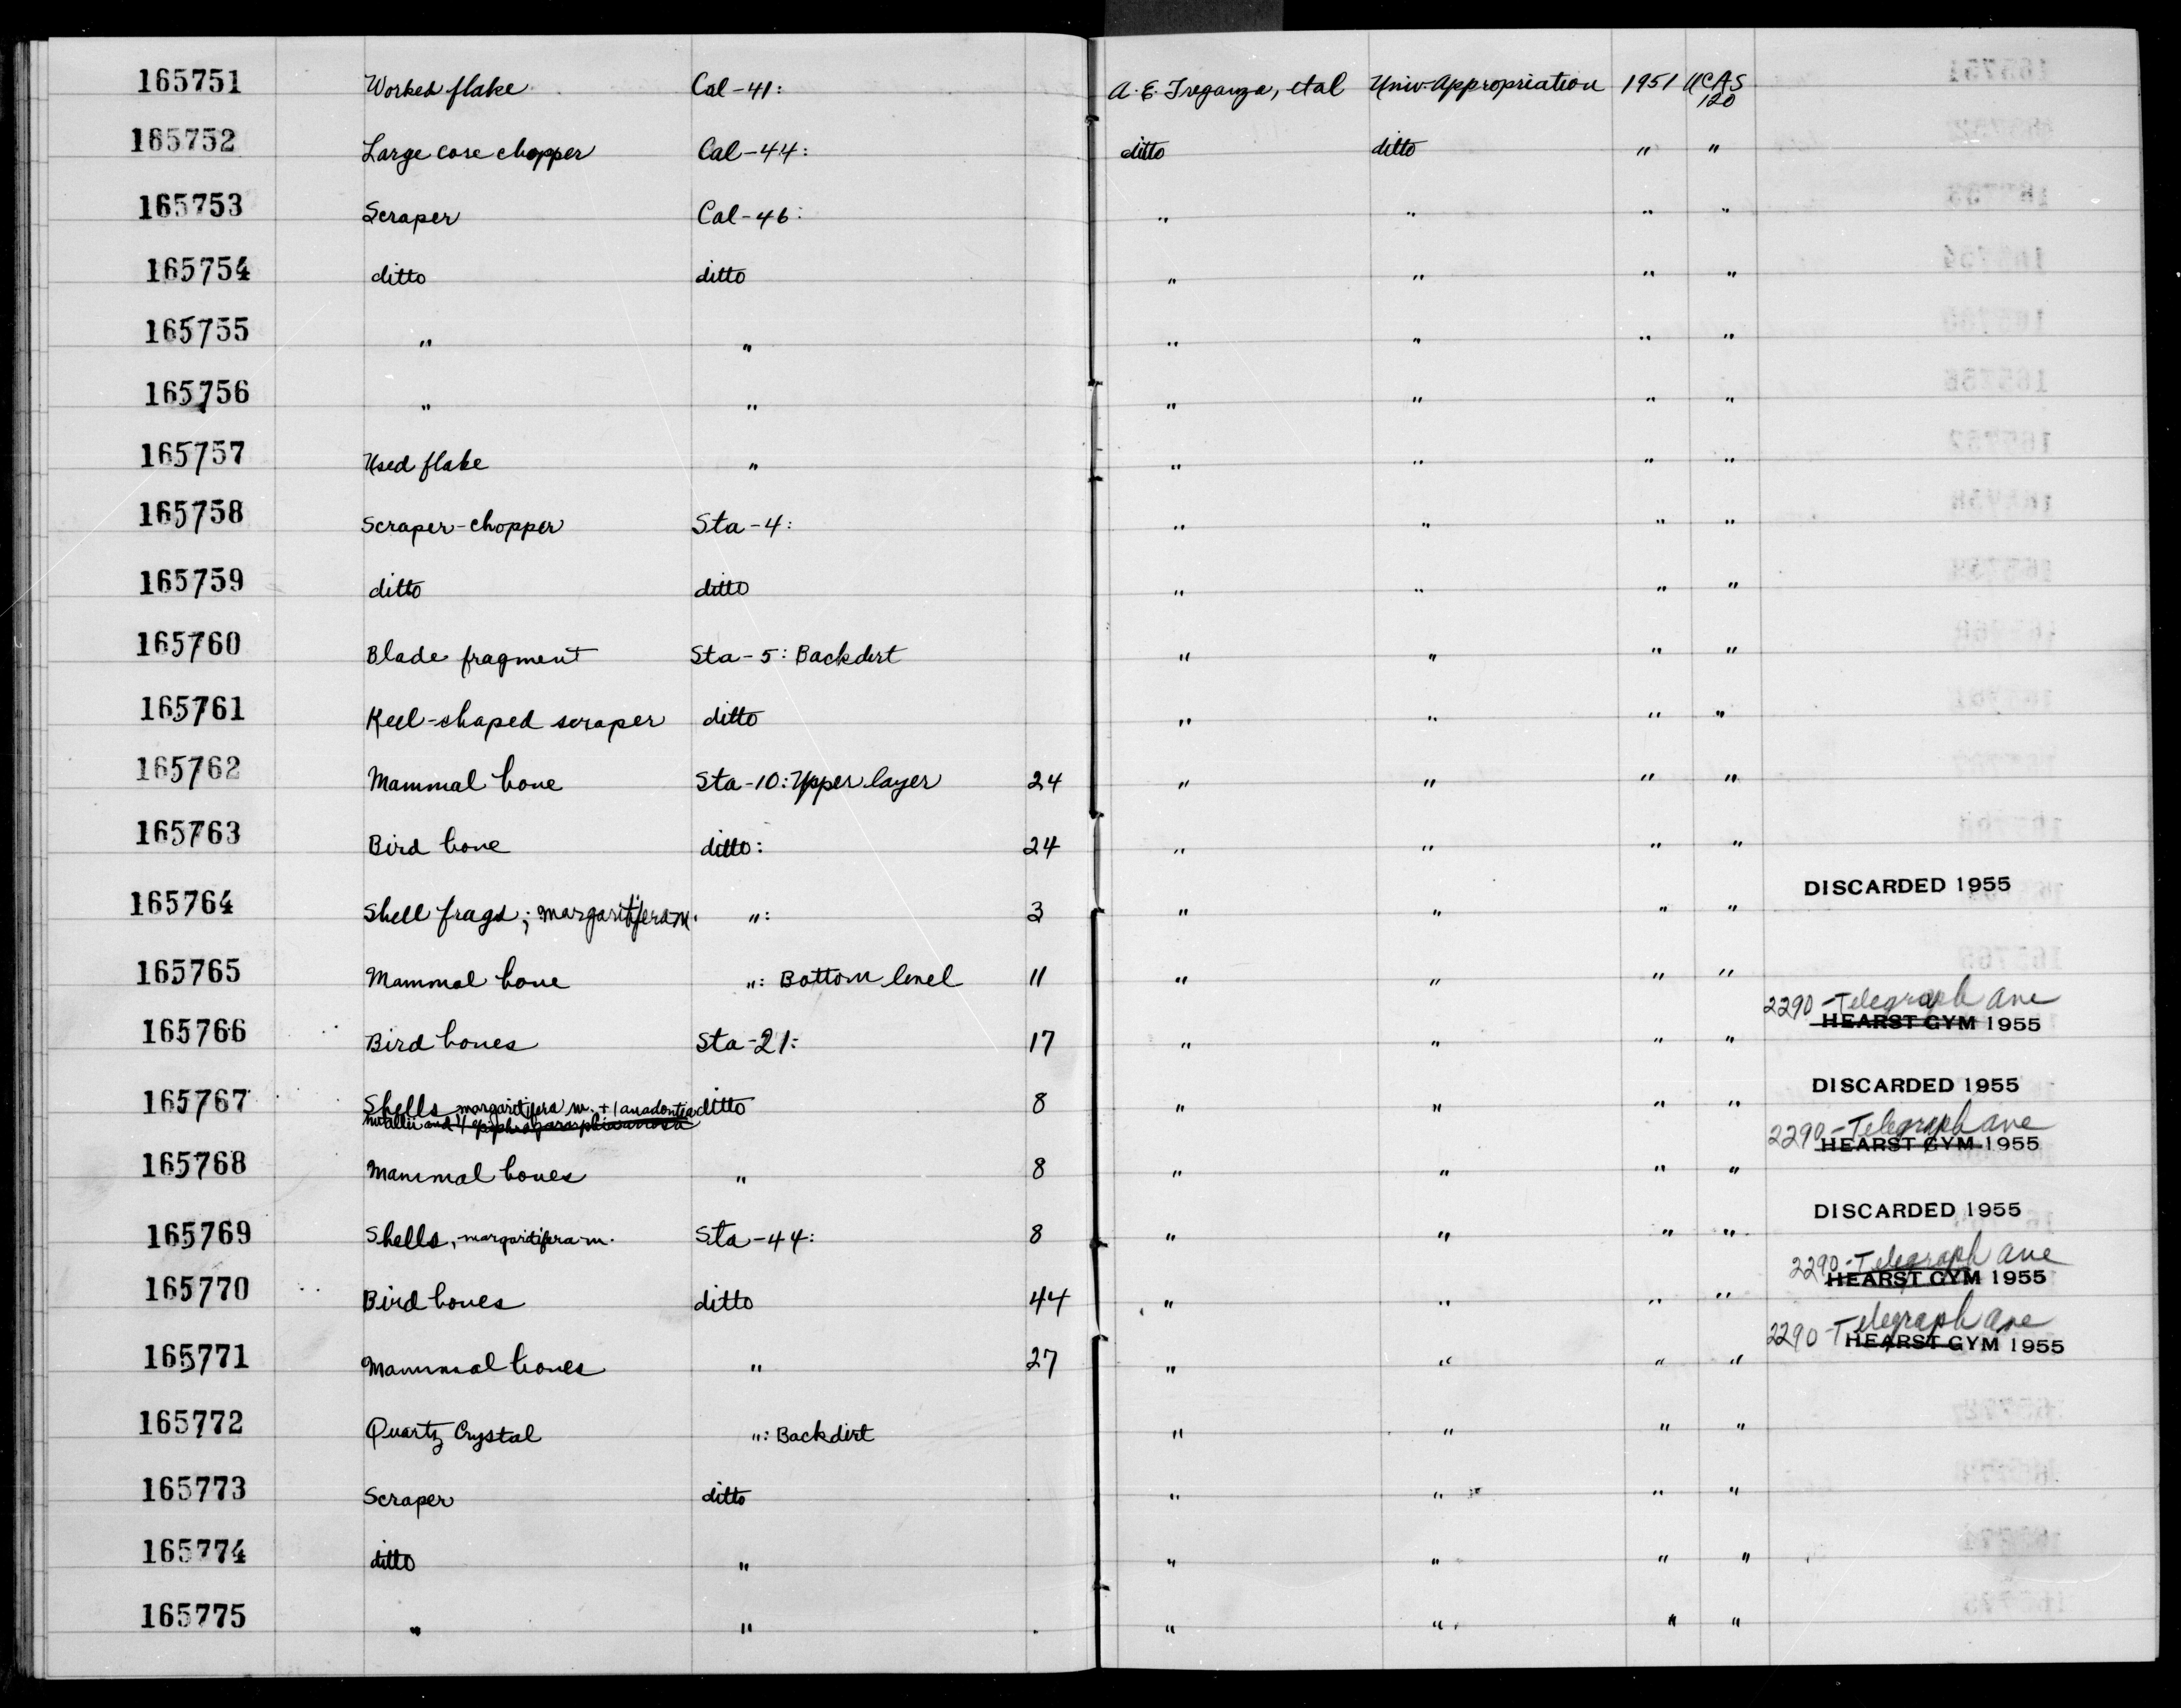 165751 Worked flake Cal-41: A. E. Treganza, et al Univ. Appropriation 1951 UCAS 120
165752 Large core chopper Cal-44: ditto ditto " "
165753 Scraper Cal-46: " " " "
165754 ditto ditto " " " "
165755 " " " " " "
165756 " " " " " "
165757 Used flake " " " " "
165758 Scraper-chopper Sta-4: " " " "
165759 ditto ditto " " " "
165760 Blade fragment Sta-5: Backdirt " " " "
165761 Keel-shaped scraper ditto " " " "
165762 Mammal bone Sta-10: Upper layer 24 " " " "
165763 Bird bone ditto: 24 " " " "
165764 Shell frags; margaritifera m. ": 3 " " " " DISCARDED 1955
165765 Mammal bone ": Bottom level 11 " " " "
2290-Telegraph Ave
165766 Bird bones Sta-21: 17 " " " " HEARST GYM 1955
165767 Shells margaritifera m. + 1 anadontea ditto 8 " " " " DISCARDED 1955
nutallii and 4
2290-Telegraph Ave
165768 Mammal bones " 8 " " " " HEARST GYM 1955
165769 Shells, margaritifera m. Sta-44: 8 " " " " DISCARDED 1955
2290-Telegraph Ave
165770 Bird bones ditto 44 " " " " HEARST GYM 1955
2290-Telegraph Ave
165771 Mammal bones " 27 " " " " HEARST GYM 1955
165772 Quartz Crystal ": Backdirt " " " "
165773 Scraper ditto " " " "
165774 ditto " " " " "
165775 " " " " " "